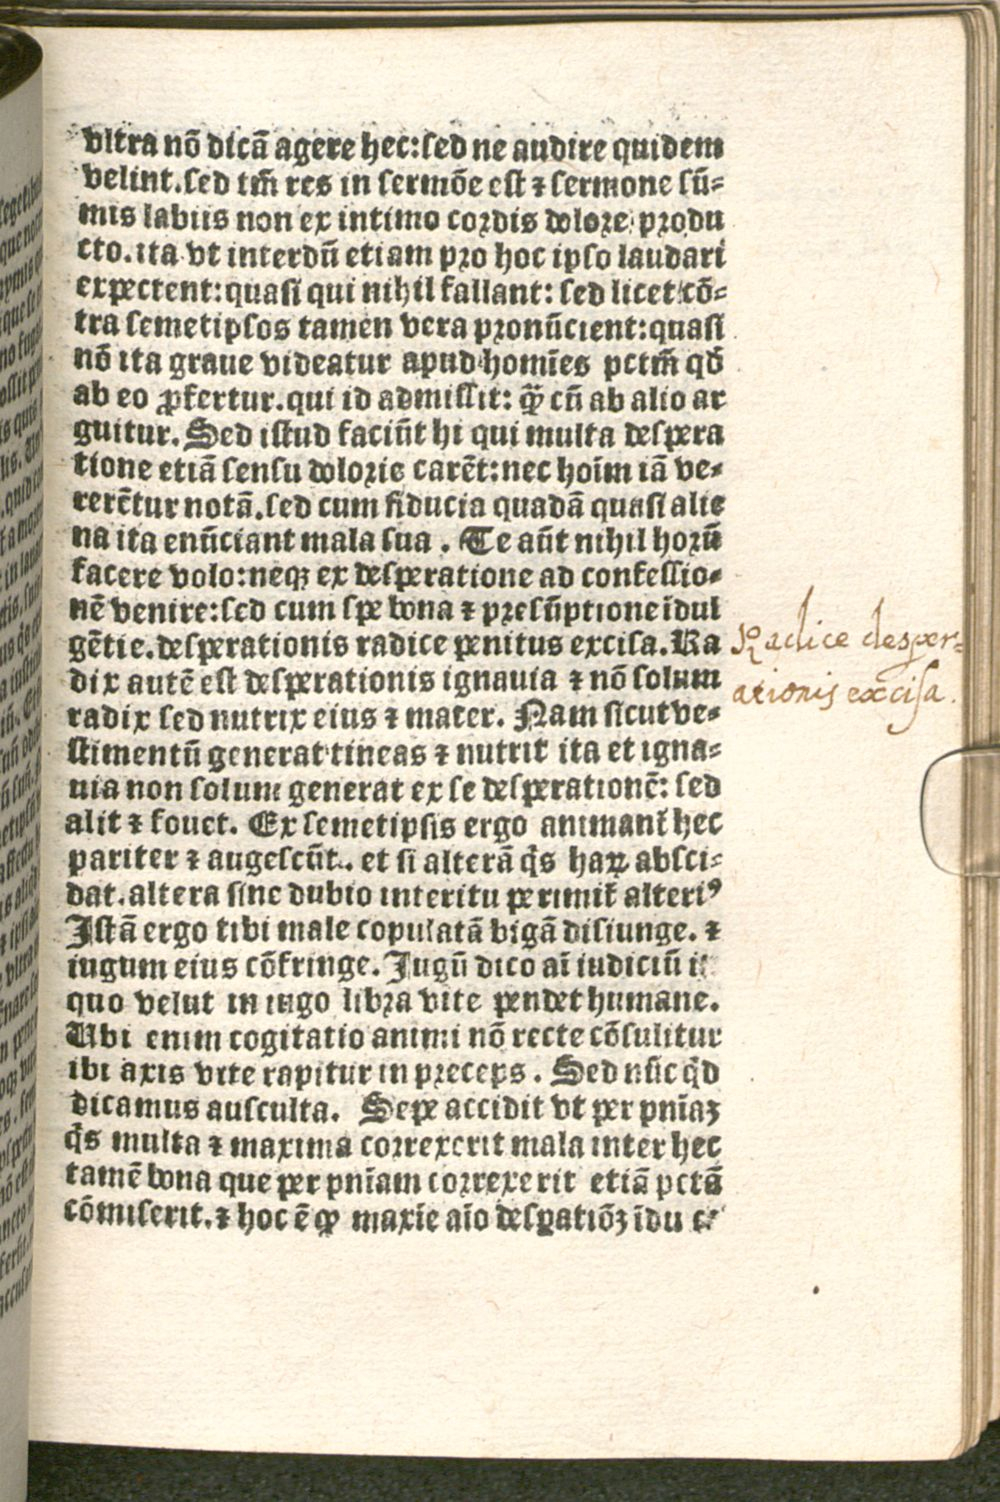 vltra nō dicā agere hec: sed ne audire quidem
velint. sed tm̄ res in sermōe est ⁊ sermone sū-
mis labiis non ex intimo cordis dolore produ
cto. ita vt interdū etiam pro hoc ipso laudari
expectent: quasi qui nihil fallant: sed licet cō-
tra semetipsos tamen vera pronūcient: quasi
nō ita graue videatur apud homīes pctm̄ qđ
ab eo ꝓfertur. qui id admissit: ꝙ̄ cū ab alio ar
guitur. Sed istud faciūt hi qui multa despera
tione etiā sensu doloris carēt: nec hoīm iā ve-
rerētur notā. sed cum fiducia quadā quasi alie
na ita enūciant mala sua. Te aūt nihil horū
facere volo: neqꝫ ex desperatione ad confessio-
nē venire: sed cum spe bona ⁊ presūptione īdul
gētie. desperationis radice penitus excisa. Ra
dix autē est desperationis ignauia ⁊ nō solum
radix sed nutrix eius ⁊ mater. Nam sicut ve-
stimentū generat tineas ⁊ nutrit ita et igna-
uia non solum generat ex se desperationē: sed
alit ⁊ fouet. Ex semetipsis ergo animant̄ hec
pariter ⁊ augescūt. et si alterā q̄s haꝝ absci-
dat. altera sine dubio interitu perimit̄ alteriꝰ
Istā ergo tibi male copulatā bigā disiunge. ⁊
iugum eius cōfringe. Jugū dico aī iudiciū i
quo velut in iugo libra vite pendet humane.
Ubi enim cogitatio animi nō recte cōsulitur
ibi axis vite rapitur in preceps. Sed nūc qđ
dicamus ausculta. Sepe accidit vt per pnīaꝫ
q̄s multa ⁊ maxima correxerit mala inter hec
tamē bona que per pnīam correxerit etiā pctā
cōmiserit. ⁊ hoc ē ꝙ maxīe aīo desꝑatiōꝫ īdu
Radice desper-
ationis excisa.